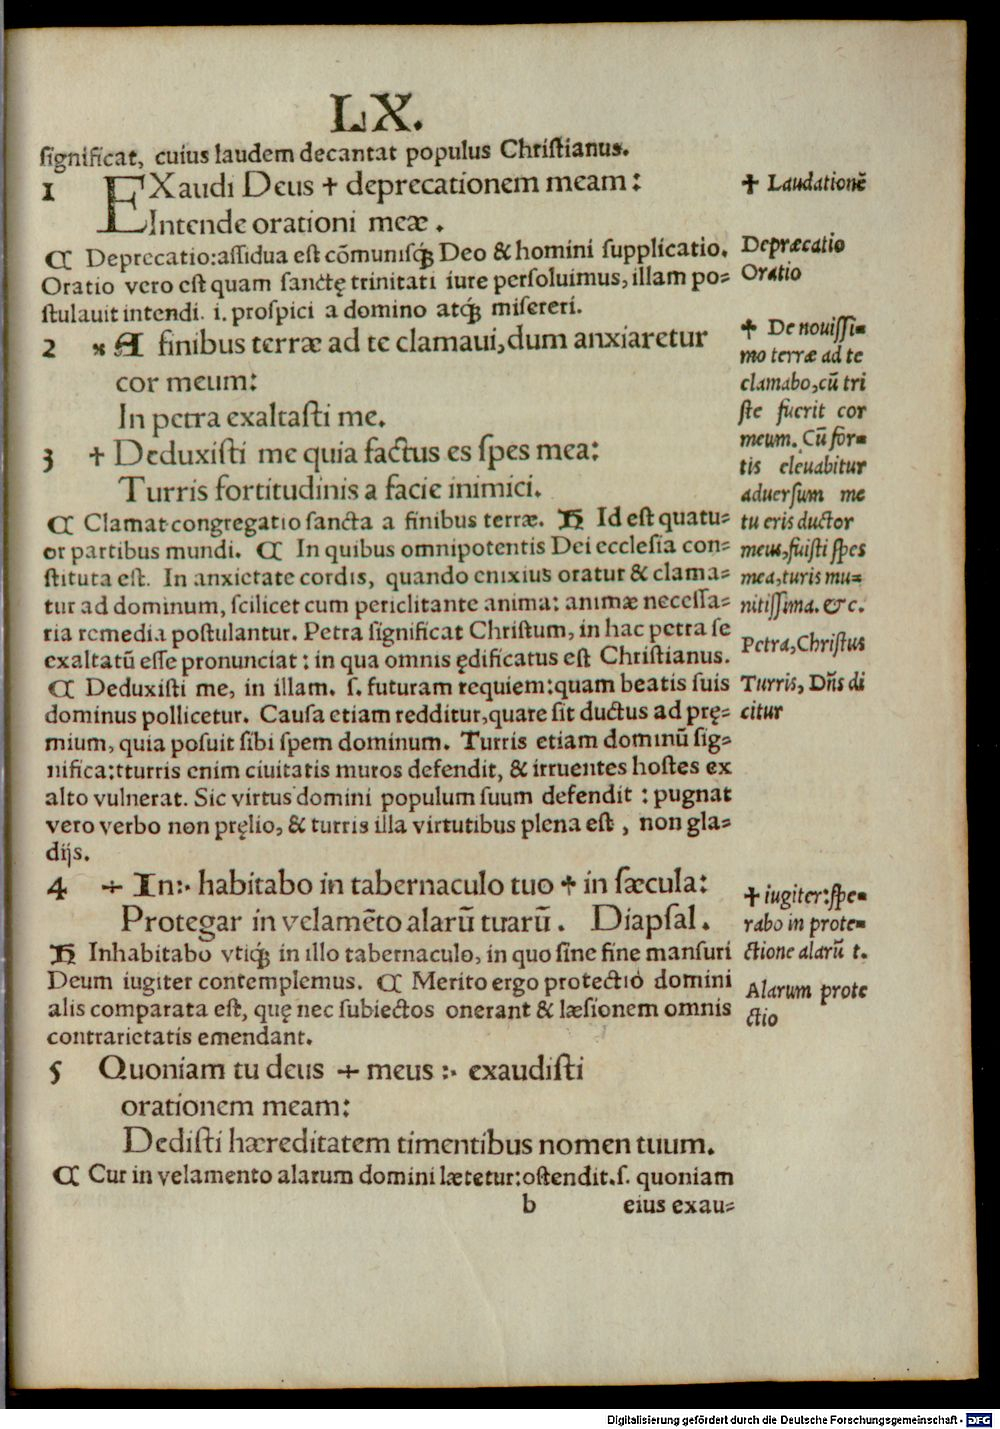 LX.
ſignificat, cuius laudem decantat populus Chriſtianus.
1 EXaudi Deus ✝ deprecationem meam:
Intende orationi meæ .
¶ Deprecatio:aſſidua eſt cõmuniſq́; Deo & homini ſupplicatio.
Oratio vero eſt quam ſanctę trinitati iure perſoluimus, illam po⸗
ſtulauit intendi. i. proſpici a domino atq́; miſereri.
2 ※ A finibus terræ ad te clamaui,dum anxiaretur
cor meum:
In petra exaltaſti me.
3 ✝ Deduxiſti me quia factus es ſpes mea:
Turris fortitudinis a facie inimici.
¶ Clamat congregatio ſancta a finibus terræ. H Id eſt quatu⸗
or partibus mundi. ¶ In quibus omnipotentis Dei eccleſia con⸗
ſtituta eſt. In anxietate cordis, quando enixius oratur & clama⸗
tur ad dominum, ſcilicet cum periclitante anima: animæ neceſſa⸗
ria remedia poſtulantur. Petra ſignificat Chriſtum, in hac petra ſe
exaltatũ eſſe pronunciat : in qua omnis ędificatus eſt Chriſtianus.
¶ Deduxiſti me, in illam. ſ. futuram requiem:quam beatis ſuis
dominus pollicetur. Cauſa etiam redditur,quare ſit ductus ad prę⸗
mium, quia poſuit ſibi ſpem dominum. Turris etiam dominũ ſig⸗
nifica:tturris enim ciuitatis muros defendit, & irruentes hoſtes ex
alto vulnerat. Sic virtus domini populum ſuum defendit : pugnat
vero verbo non pręlio, & turris illa virtutibus plena eſt , non gla⸗
dijs.
4 ÷ In:· habitabo in tabernaculo tuo ✝ in ſæcula:
Protegar in velamẽto alarũ tuarũ . Diapſal .
H Inhabitabo vtiq́; in illo tabernaculo, in quo ſine fine manſuri
Deum iugiter contemplemus. ¶ Merito ergo protectio domini
alis comparata eſt, quę nec ſubiectos onerant & læſionem omnis
contrarietatis emendant.
5 Quoniam tu deus ÷ meus :· exaudiſti
orationem meam:
Dediſti hæreditatem timentibus nomen tuum.
¶ Cur in velamento alarum domini lætetur:oſtendit.ſ. quoniam
b eius exau⸗
✝ Laudationẽ
Depræcatio
Oratio
✝ De nouiſſi⸗
mo terræ ad te
clamabo,cũ tri
ſte fuerit cor
meum. Cũ for⸗
tis eleuabitur
aduerſum me
tu eris ductor
meus,fuiſti ſpes
mea,turis mu⸗
nitiſſima. &c.
Petra,Chriſtus
Turris, Dñs di
citur
✝ iugiter:ſpe⸗
rabo in prote⸗
ctione alarũ t.
Alarum prote
ctio
Digitalisierung gefördert durch die Deutsche Forschungsgemeinschaft - DFG